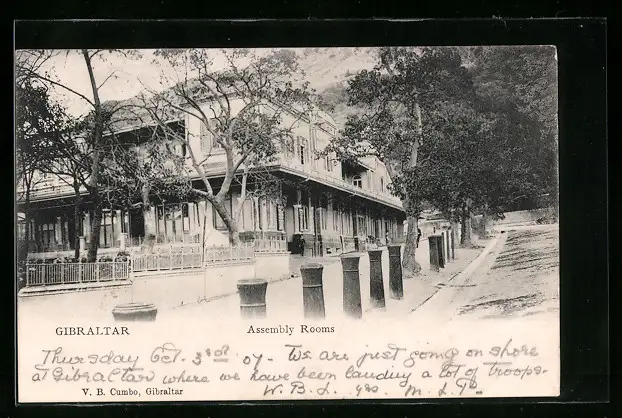 GIBRALTAR
Assembly Rooms
Thursday Oct. 3rd 07 - We are just going on shore
at Gibraltar where we have been landing a lot of troops.
V. B. Cumbo, Gibraltar
W. B. L. yrs.